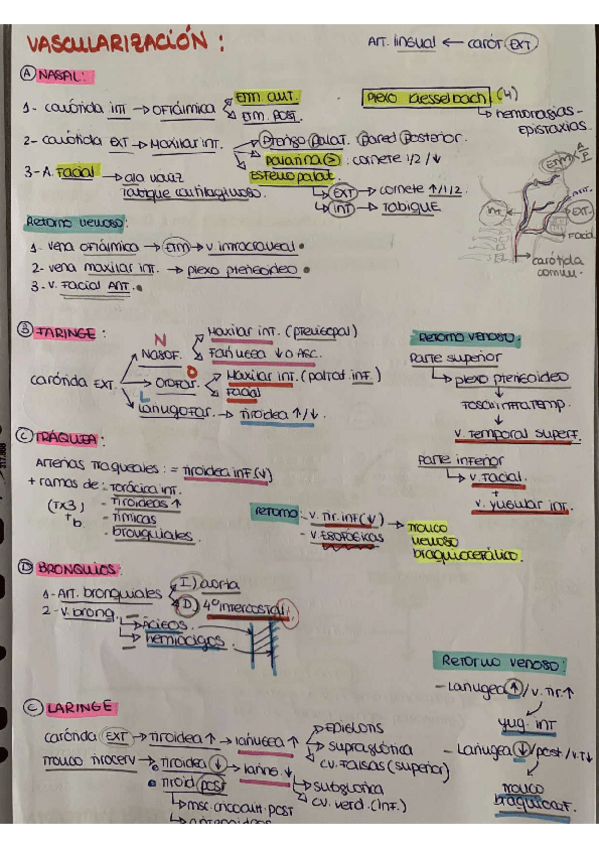 VASCULARIZACIÓN :
ART. lingual ← carót. EXT
A NASAL:
1- carótida int → oftálmica
Etm. ant.
Etm. post.
Plexo Kiesselbach (4)
↳ hemorragias - Epistaxis.
2- carótida EXT → Maxilar int.
Prongo Palat. Pared Posterior.
Palatina (>) : cornete 1/2 /↓
Esfenopalat.
↳ EXT → cornete ↑/1/2.
↳ INT → Tabique
3- A. Facial → ala nariz
Tabique cartilaginoso.
Etm A/P
Int
ANT.
EXT.
Facial
carótida común.
Retorno venoso:
1- vena oftálmica → ETM → v. intracraneal
2- vena maxilar int. → plexo pterigoideo
3- V. Facial ANT.
B FARINGE :
carótida EXT.
N
NASOF.
Maxilar int. (
Faríngea ↓ o ASC.
O
Orofar.
Maxilar int. (palat. inf.)
Facial
L
Laringofar. → Tiroidea ↑/↓.
Retorno venoso:
Parte superior
↳ plexo pterigoideo
↓
Fosa infratemp.
↓
V. Temporal superf.
Parte inferior
↳ v. facial.
+
v. yugular int.
C TRÁQUEA:
Arterias Traqueales : = Tiroidea inf (↓)
+ ramas de :
(Tx3) + b
- Torácica int.
- Tiroideas ↑
- Tímicas
- bronquiales.
Retorno :
- v. Tir. inf (↓)
- v. ESOFÁGICAS
→ Tronco venoso braquiocefálico.
D BRONQUIOS:
1- Art. bronquiales
I) aorta
D) 4º intercostal
2- V. brong.
↳ Ácigos
↳ hemiácigos
E LARINGE
carótida EXT → tiroidea ↑ → laríngea ↑
Epiglotis
supraglótica
CV. Falsas (superior)
Tronco tirocerv → Tiroidea ↓ → laring. ↓
subglótica
cv. verd. (inf.)
Tiroid post
↳ msc. cricoarit. post
Retorno venoso:
- Laríngea ↑ / v. Tir. ↑
↓
yug. INT
- Laríngea ↓ / post / v.T↓
↓
Tronco braquicef.